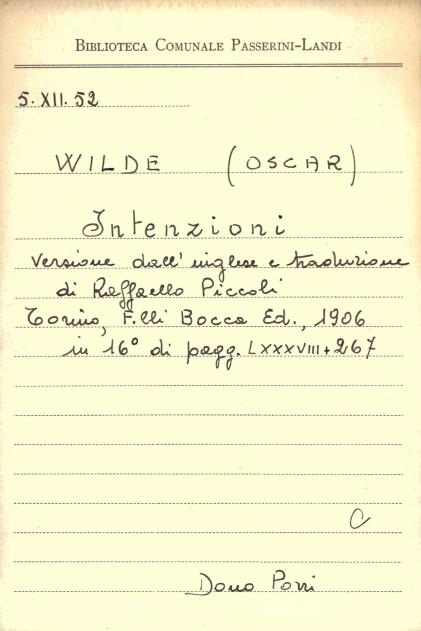 BIBLIOTECA COMUNALE PASSERINI-LANDI
5. XII. 52
WILDE (OSCAR)
Intenzioni
versione dall'inglese e traduzione
di Raffaello Piccoli
Torino, F.lli Bocca Ed., 1906
in 16° di pagg. LXXXVIII+267
C
Dono Porri